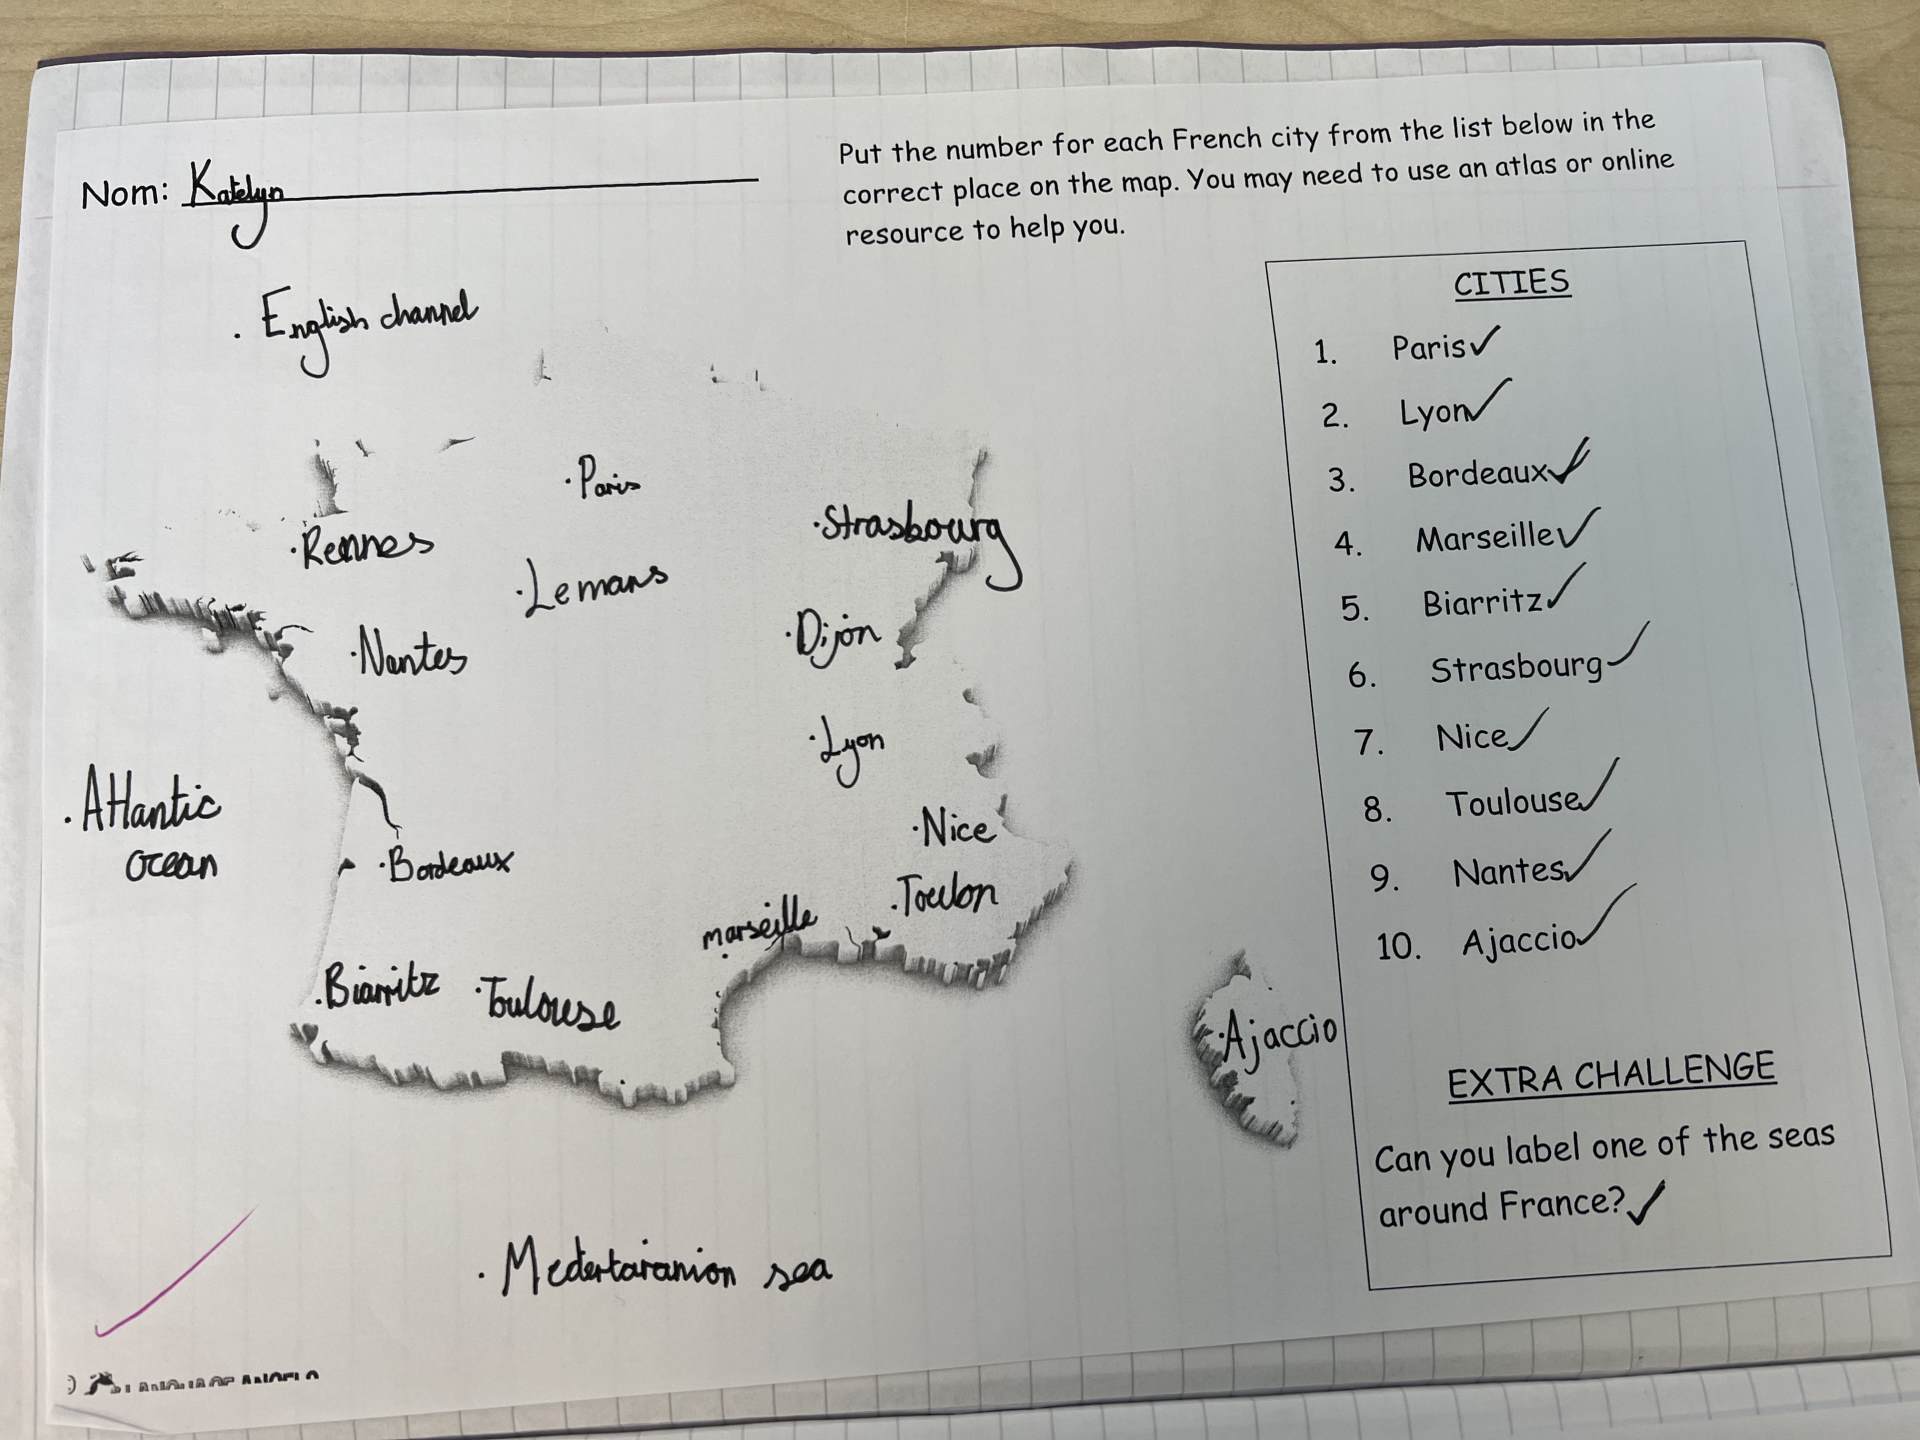 Nom: Katelyn
Put the number for each French city from the list below in the
correct place on the map. You may need to use an atlas or online
resource to help you.
English channel
Paris
Strasbourg
Rennes
Lemans
Dijon
Nantes
Lyon
Atlantic
ocean
Nice
Bordeaux
Toulon
marseille
Biarritz
Toulouse
Ajaccio
Medertaranion sea
CITIES
1. Paris
2. Lyon
3. Bordeaux
4. Marseille
5. Biarritz
6. Strasbourg
7. Nice
8. Toulouse
9. Nantes
10. Ajaccio
EXTRA CHALLENGE
Can you label one of the seas
around France?